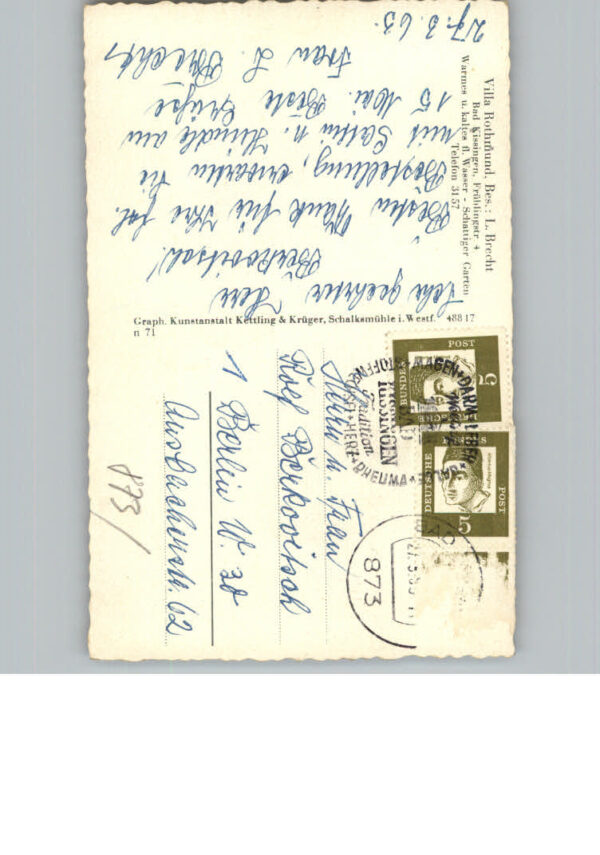 Villa Rothmund, Bes.: L. Brecht
Bad Kissingen, Frühlingstr. 4
Warmes u. kaltes fl. Wasser - Schattiger Garten
Telefon 3157
27.3.63.
Sehr geehrter Herr
Berkovitsch!
Besten Dank für Ihre
Bestellung, erwarten Sie
mit Gattin u. Hündle am
15 Mai. Beste Grüße
Frau L. Brecht
Graph. Kunstanstalt Kettling & Krüger, Schalksmühle i. Westf. 48817
n 71
Herrn u. Frau
Rolf Berkovitsch
1 Berlin W. 30
Ansbacherstr. 62
873/
POST
5
DEUTSCHE
BUNDES
DEUTSCHE BUNDES
POST
5
BAD
KISSINGEN
MAGEN+DARM+LEBER
HERZ+RHEUMA
873